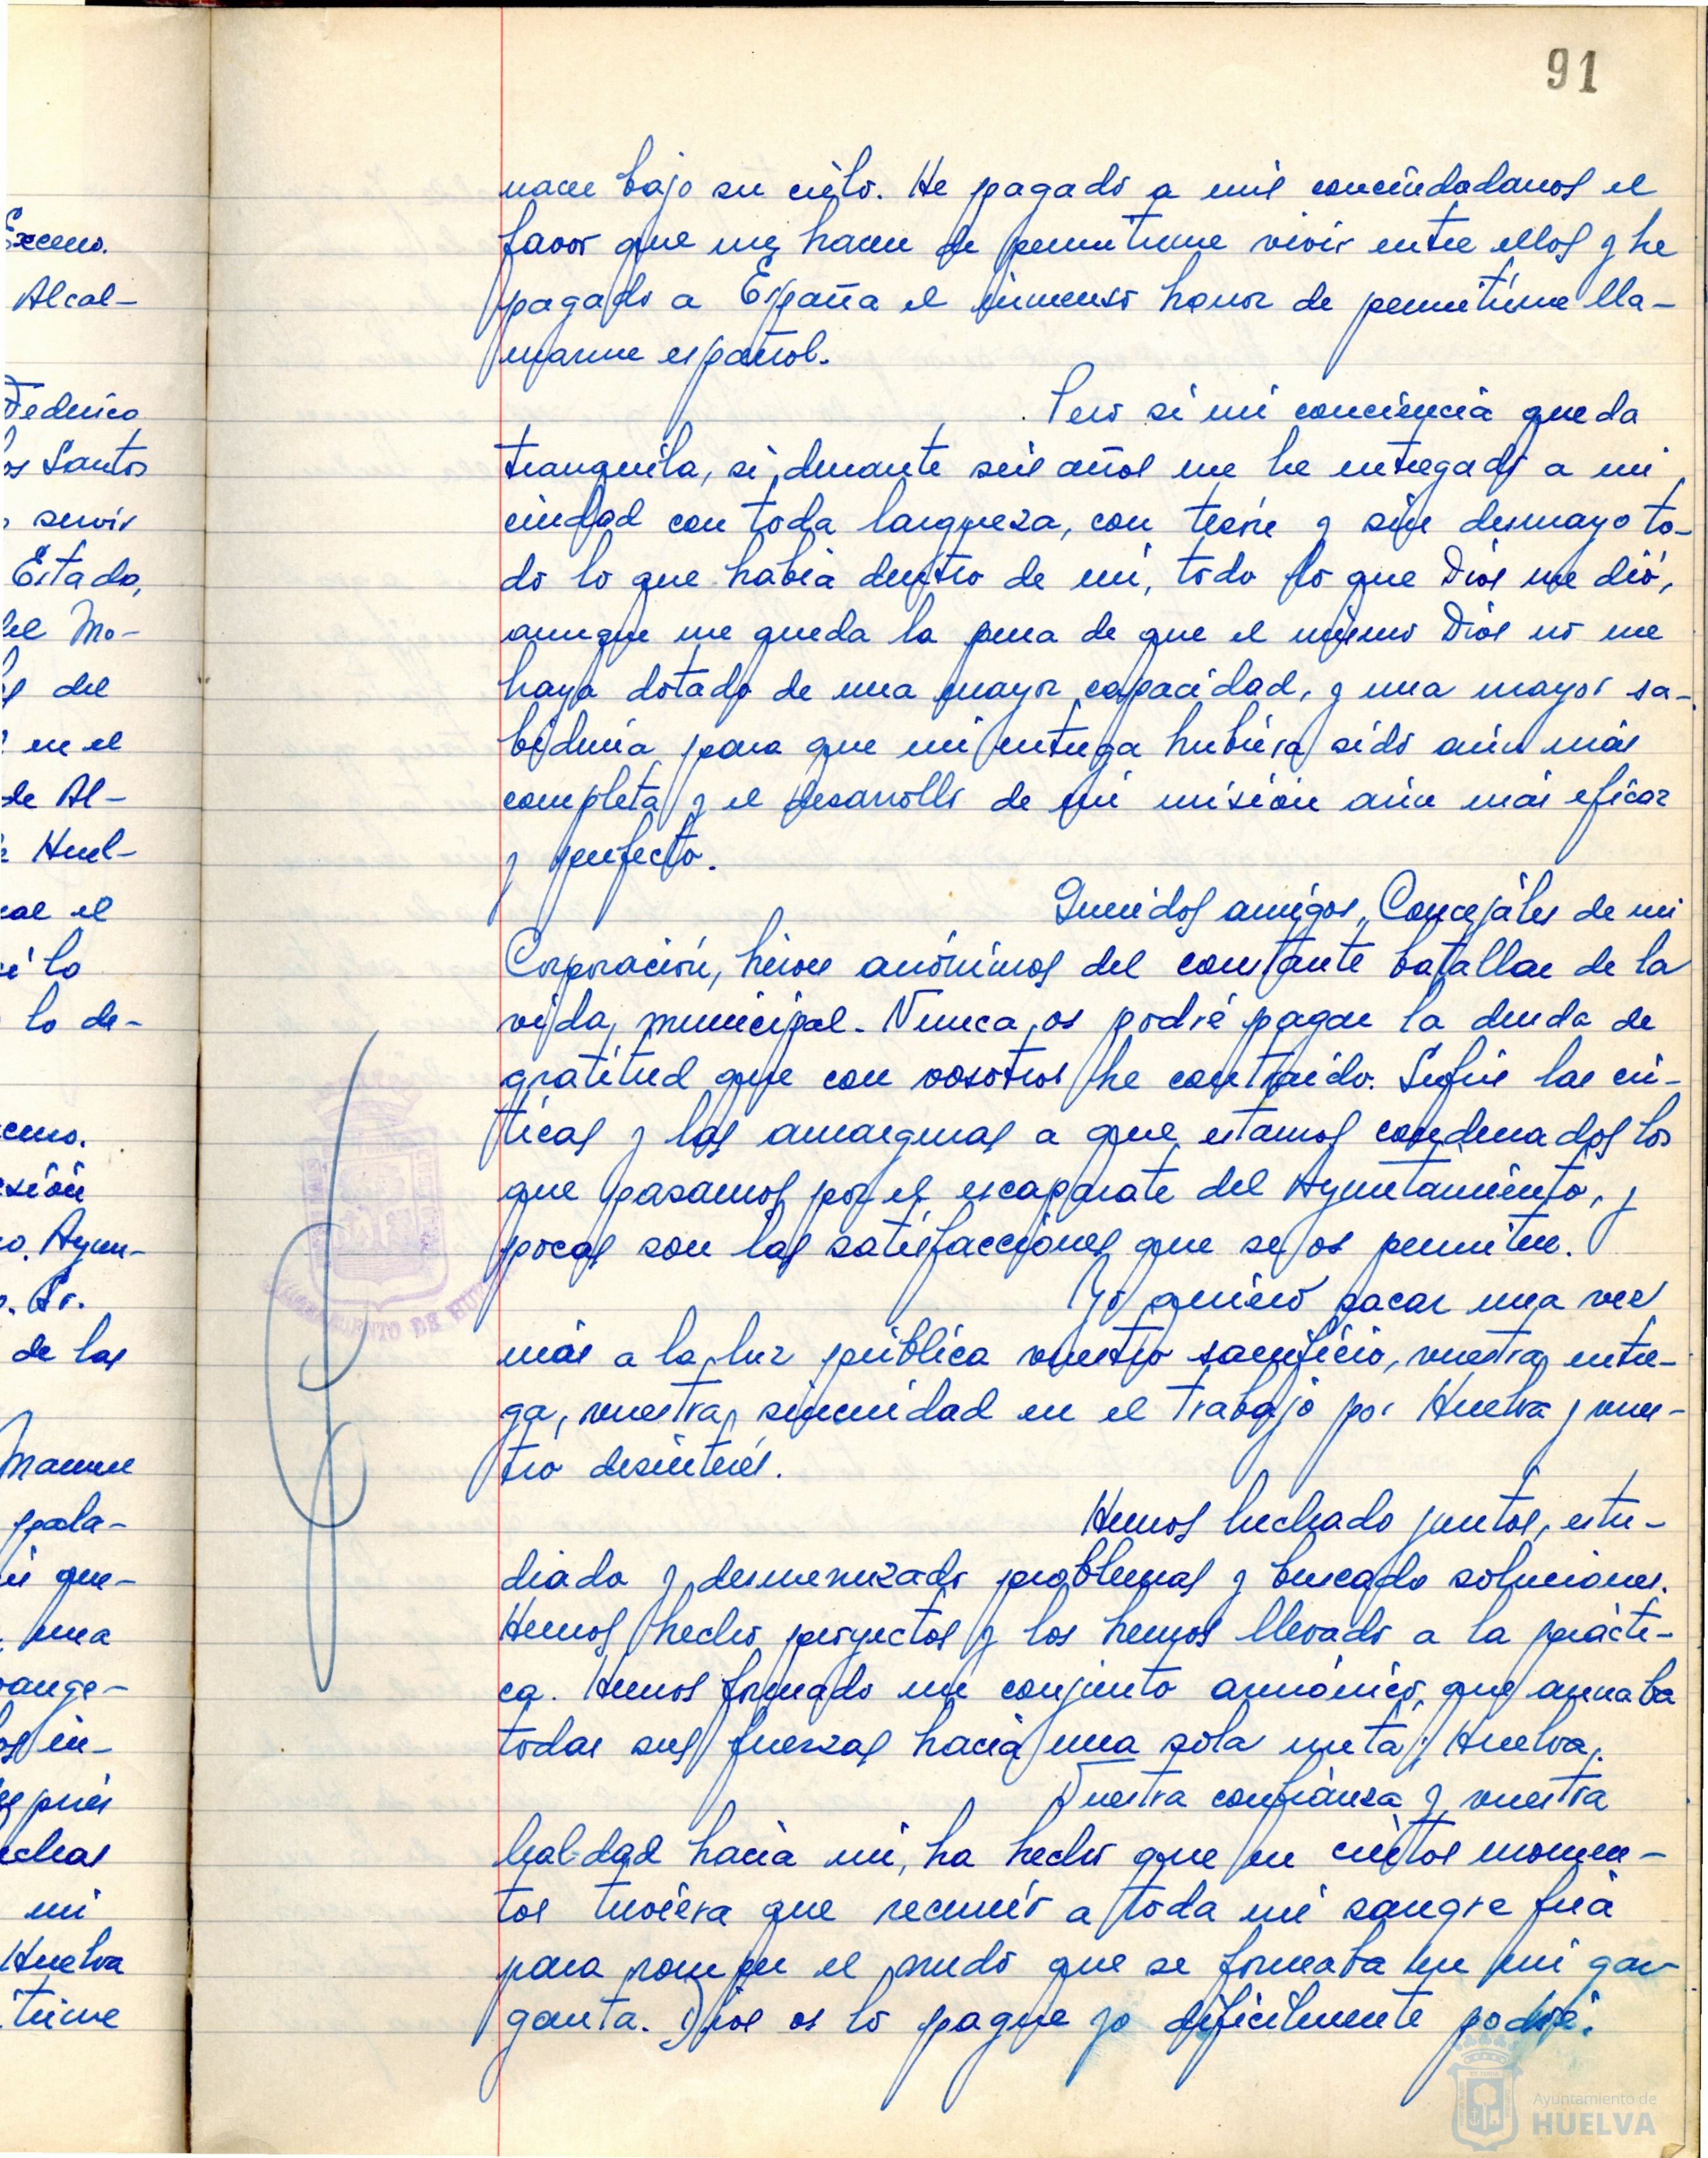 91
nace bajo su cielo. He pagado a mis conciudadanos el
favor que me hacen de permitirme vivir entre ellos y he
pagado a España el inmenso honor de permitirme lla-
marme español.
Pero si mi conciencia queda
tranquila, si durante seis años me he entregado a mi
ciudad con toda largueza, con tesón y sin desmayo to-
do lo que había dentro de mí, todo lo que Dios me dió,
aunque me queda la pena de que el mismo Dios no me
haya dotado de una mayor capacidad, y una mayor sa-
biduría para que mi entrega hubiera sido aún más
completa y el desarrollo de mi misión aún más eficaz
y perfecto.
Queridos amigos, Concejales de mi
Corporación, héroes anónimos del constante batallar de la
vida municipal. Nunca os podré pagar la deuda de
gratitud que con vosotros he contraido. Sufrís las crí-
ticas y las amarguras a que estamos condenados los
que pasamos por el escaparate del Ayuntamiento, y
pocas son las satisfacciones que se os permiten.
Yo quiero sacar una vez
más a la luz pública vuestro sacrificio, vuestra entre-
ga, vuestra sinceridad en el trabajo por Huelva y vues-
tro desinterés.
Hemos luchado juntos, estu-
diado y desmenuzado problemas y buscado soluciones.
Hemos hecho proyectos y los hemos llevado a la prácti-
ca. Hemos formado un conjunto armónico, que aunaba
todas sus fuerzas hacia una sola meta; Huelva.
Vuestra confianza y vuestra
lealdad hacia mi, ha hecho que en ciertos momen-
tos tuviera que recurrir a toda mi sangre fría
para romper el nudo que se formaba en mi gar-
ganta. Dios os lo pague yo dificilmente podré.
Excmo.
Alcal-
Federico
los Santos
servir
Estado,
del Mo-
del
en el
de Al-
Huel-
el
lo
lo de-
Ayun-
Sr.
de las
pala-
que-
una
in-
mi
Huelva
AYUNTAMIENTO DE HUELVA
Ayuntamiento de
HUELVA